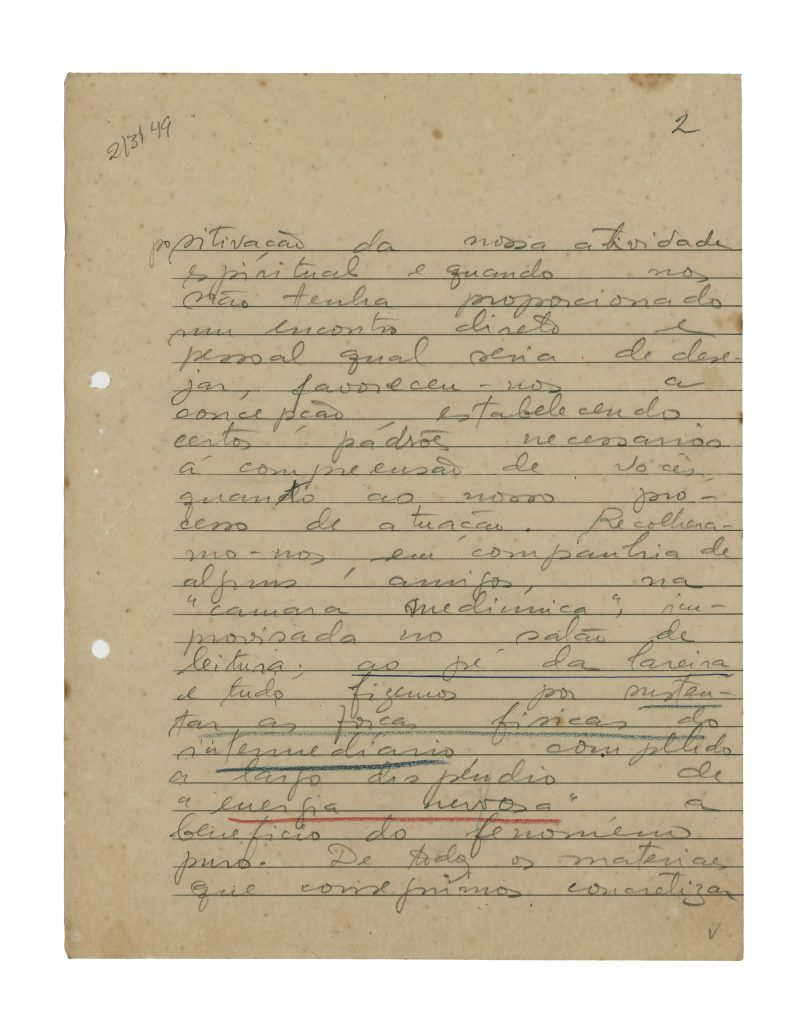 2/3/49
2
positivação da nossa atividade
espiritual e quando nos
não tenha proporcionado
um encontro direto e
pessoal qual seria de dese-
jar, favoreceu-nos a
concepção, estabelecendo
certos pádrões necessarios
á compreensão de vocês,
quanto ao nosso pro-
cesso de atuação. Recolhera-
mo-nos em companhia de
alguns amigos, na
"camara mediunica", im-
provisada no salão de
leitura, ao pé da lareira
e tudo fizemos por susten-
tar as forças fisicas do
intermediário, compelido
a largo dispêndio de
"energia nervosa" a
beneficio do fenomêno
puro. De todos os materiaes
que conseguimos concretizar